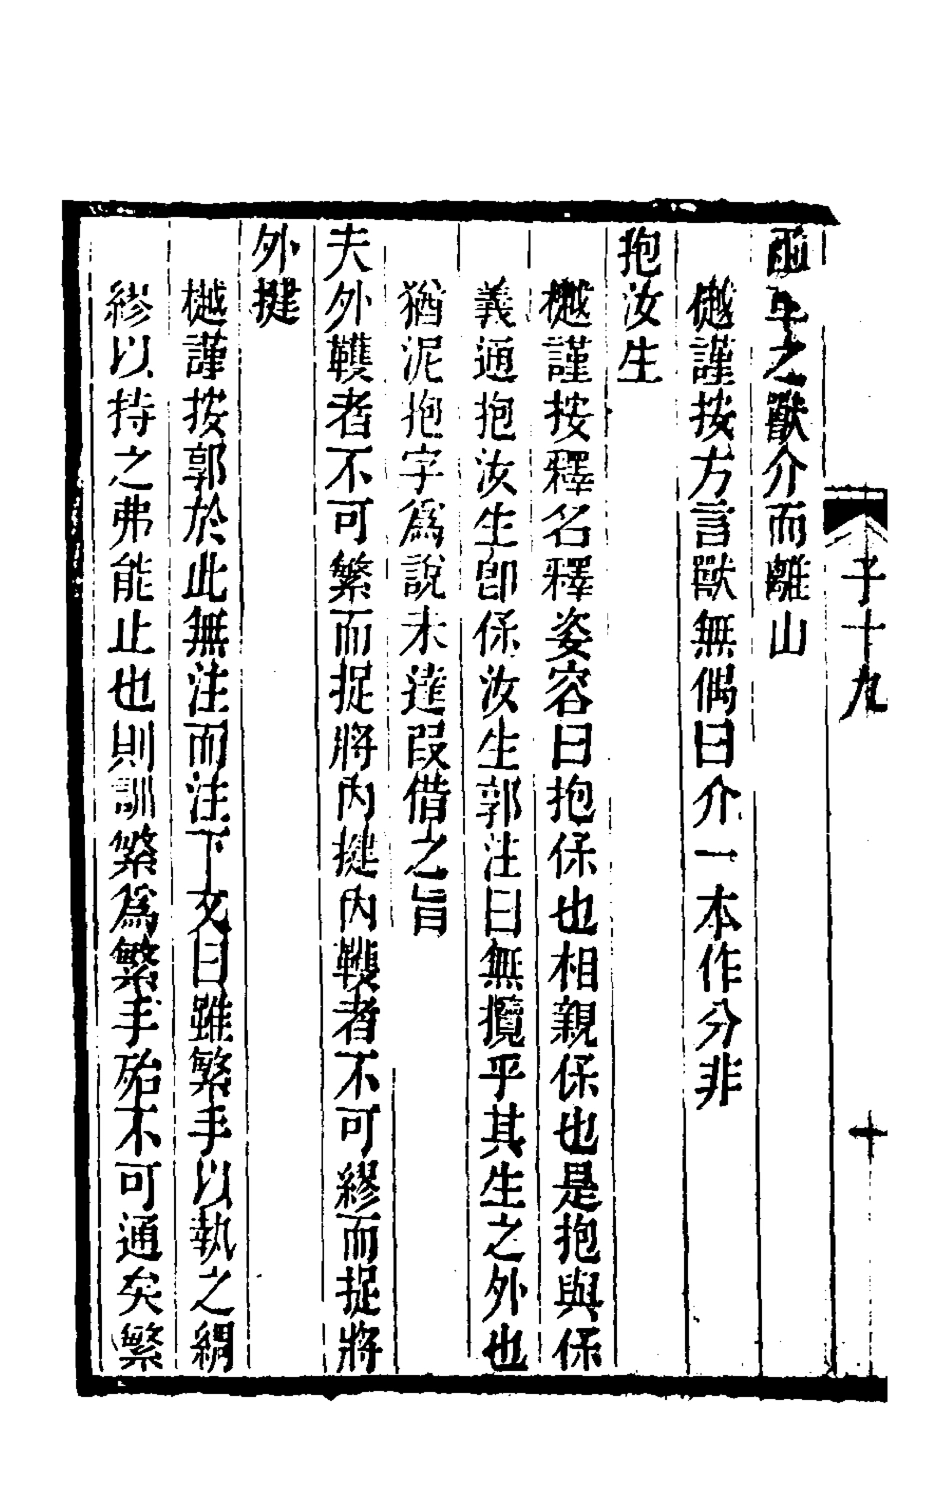 函車之獸介而離山
樾謹按方言獸無偶曰介一本作分非
抱汝生
樾謹按釋名釋姿容曰抱保也相親保也是抱與保
義通抱汝生卽保汝生郭注曰無攬乎其生之外也
猶泥抱字爲說未達叚借之旨
夫外韄者不可繁而捉將內揵內韄者不可繆而捉將
外揵
樾謹按郭於此無注而注下文曰雖繁手以執之綢
繆以持之弗能止也則訓繁爲繁手殆不可通矣繁
子十九
十